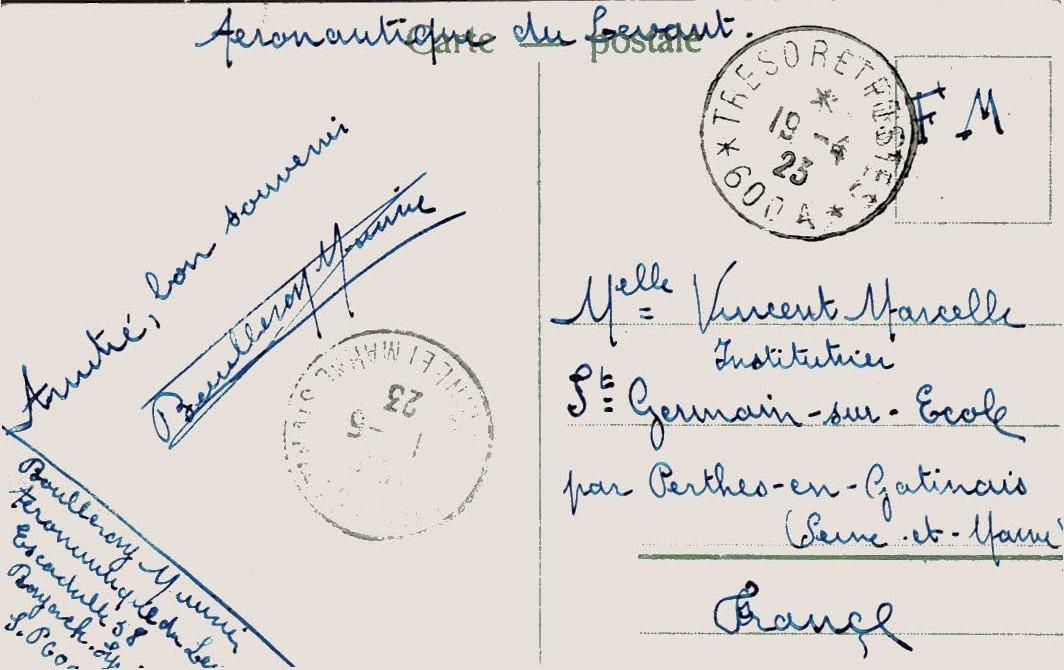 Aeronautique du Levant.
Carte postale
TRESOR ET POSTES
* 600A *
19 -4
23
F M
Amitié, bon souvenir
Boulleroy Maurice
SEINE ET MARNE
1 -5
23
Melle Vincent Marcelle
Institutrice
St Germain-sur-Ecole
par Perthes-en-Gatinais
(Seine-et-Marne
France
Boulleroy Maurice
Aeronautique du Lev
Escadrille 58
S.P 600